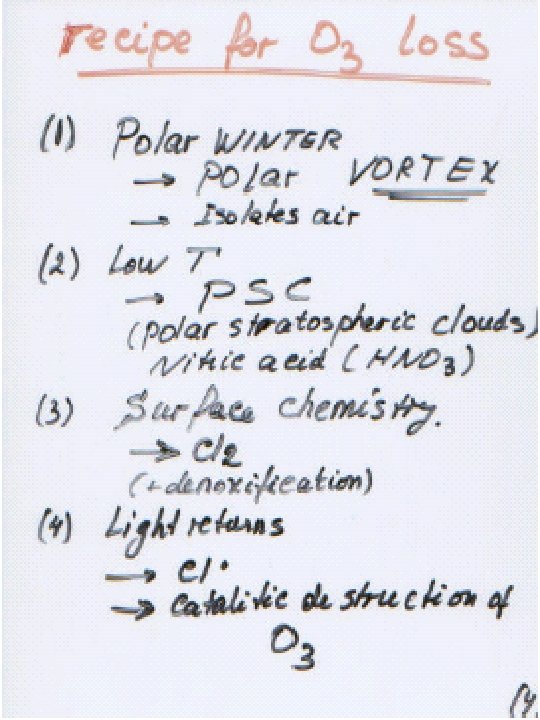 recipe for O3 loss
(1) Polar WINTER
→ POlar VORTEX
→ Isolates air
(2) Low T
→ PSC
(Polar stratospheric clouds)
Nitric acid (HNO3)
(3) Surface Chemistry.
→ Cl2
(+denoxification)
(4) Light returns
→ Cl•
→ Catalitic destruction of
O3
(4.